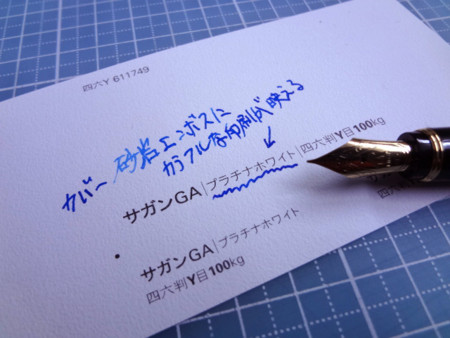 四六Y 611749
カバー 砂岩エンボスに
カラフルな印刷が映える
サガンGA|プラチナホワイト|四六判Y目100kg
サガンGA|プラチナホワイト
四六判Y目100kg